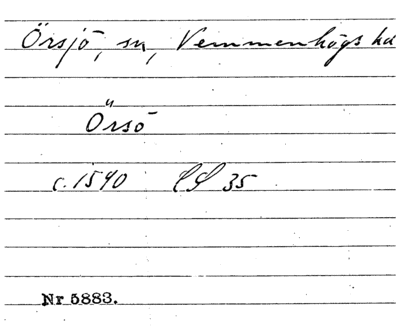 Örsjö, sn, Vemmenhögs hd
Örsö
c. 1590 LS 35
Nr 5883.